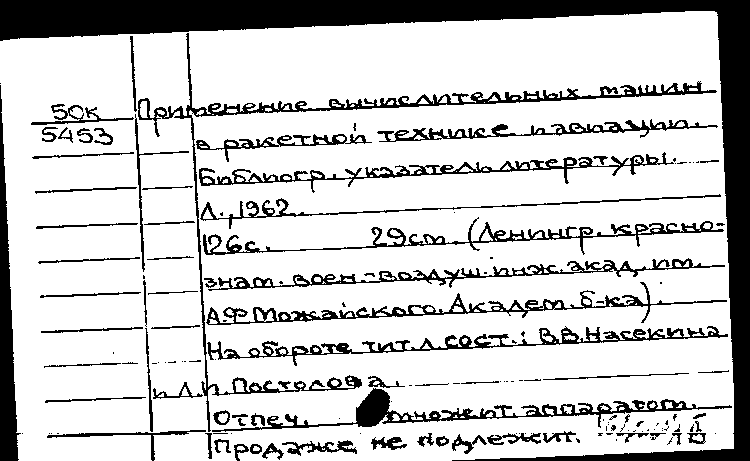 50к Применение вычислительных машин
5453 в ракетной технике и авиации.
Библиогр. указатель литературы.
Л., 1962.
126с. 29см. (Ленингр. красно-
знам. воен.-воздуш. инж. акад. им.
А.Ф Можайского. Академ. б-ка).
На обороте тит. л. сост.: В.В. Насекина
и Л.И. Постолова.
Отпеч. множит. аппаратом.
Продаже не подлежит.